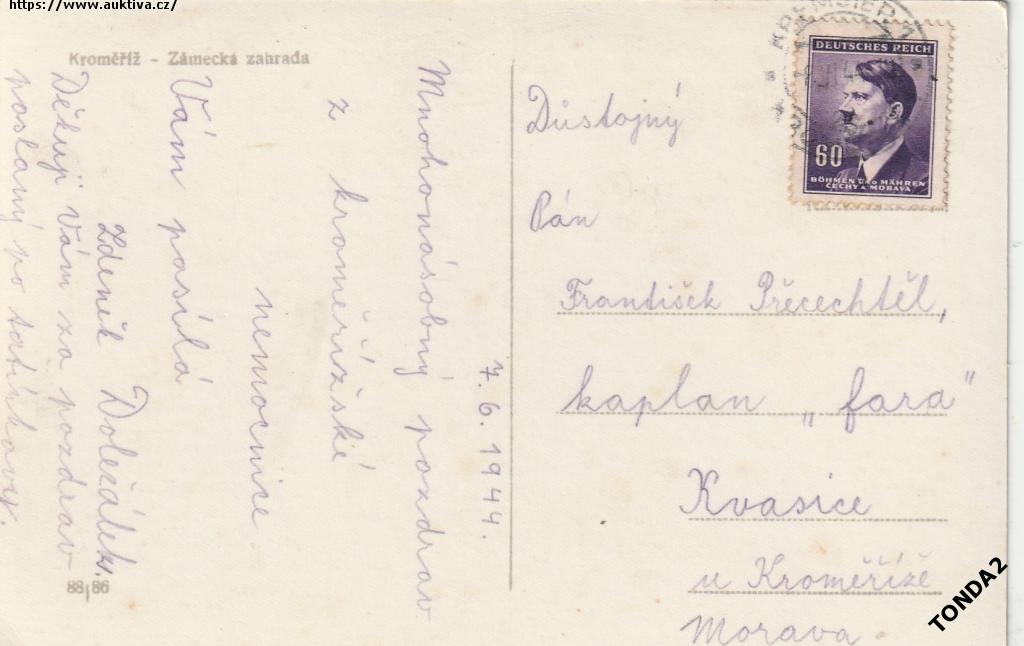 https://www.auktiva.cz/
Kroměříž - Zámecká zahrada
7. 6. 1944.
Mnohonásobný pozdrav
z kroměřížské
nemocnice
Vám posílá
Zdeněk Doležálek
Děkuji Vám za pozdrav
poslaný po tatínkovi.
88 86
DEUTSCHES REICH
60
BÖHMEN UND MÄHREN
ČECHY A MORAVA
Důstojný
Pán
František Přecechtěl,
kaplan „fara"
Kvasice
u Kroměříže
Morava.
TONDA2